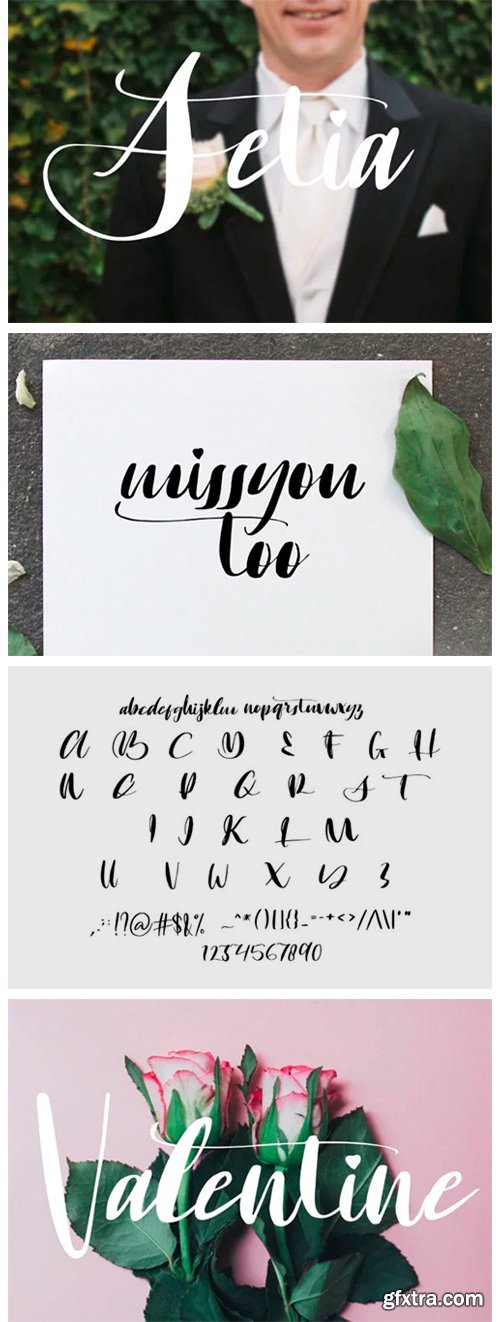 Setia
miss you
too
abcdefghijklm nopqrstuvwxyz
A B C D E F G H
N O P Q R S T
I J K L M
U V W X Y Z
!?@#$&%
1234567890
Valentine
gfxtra.com